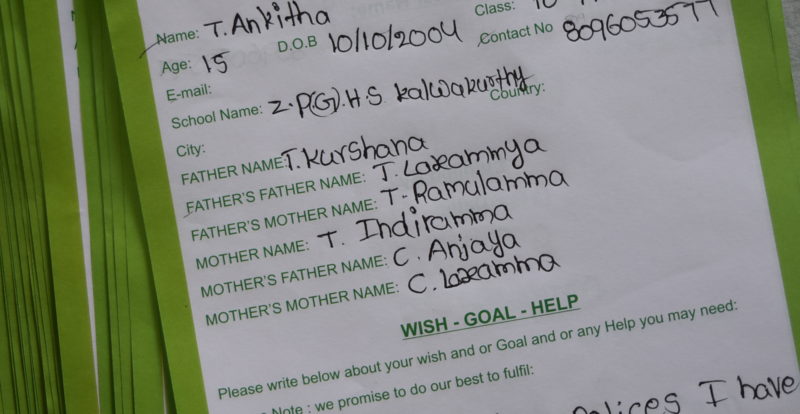 Name: T. Ankitha Class: 10
Age: 15 D.O.B 10/10/2004 Contact No 8096053577
E-mail:
School Name: Z.P(G).H.S kalwakurthy Country:
City:
FATHER NAME: T. Kurshana
FATHER'S FATHER NAME: T. Laxeammya
FATHER'S MOTHER NAME: T. Ramulamma
MOTHER NAME: T. Indiramma
MOTHER'S FATHER NAME: C. Anjaya
MOTHER'S MOTHER NAME: C. Laxeamma
WISH - GOAL - HELP
Please write below about your wish and or Goal and or any Help you may need:
Note : we promise to do our best to fulfil:
I have